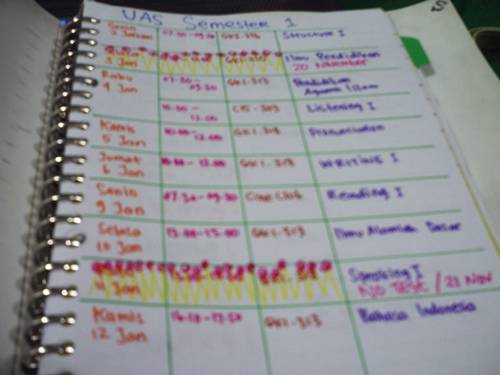 UAS Semester 1
Senin
2 Januari
Structure I
3 Jan
Ilmu Pendidikan
20 November
Rabu
4 Jan
07.30 -
09.30
GK1-313
Pendidikan
Agama Islam
10.00 -
12.00
Listening I
Kamis
5 Jan
10.00 -
12.00
GK1-313
Pronunciation
Jumat
6 Jan
10.00 - 12.00
GK1-313
WRITING I
Senin
9 Jan
07.30-09.30
Cine Club
Reading I
Selasa
10 Jan
13.00-15.00
GK1-313
Ilmu Alamiah Dasar
11 Jan
Speaking I
NO TEST / 21 Nov
Kamis
12 Jan
GK1-313
Bahasa Indonesia